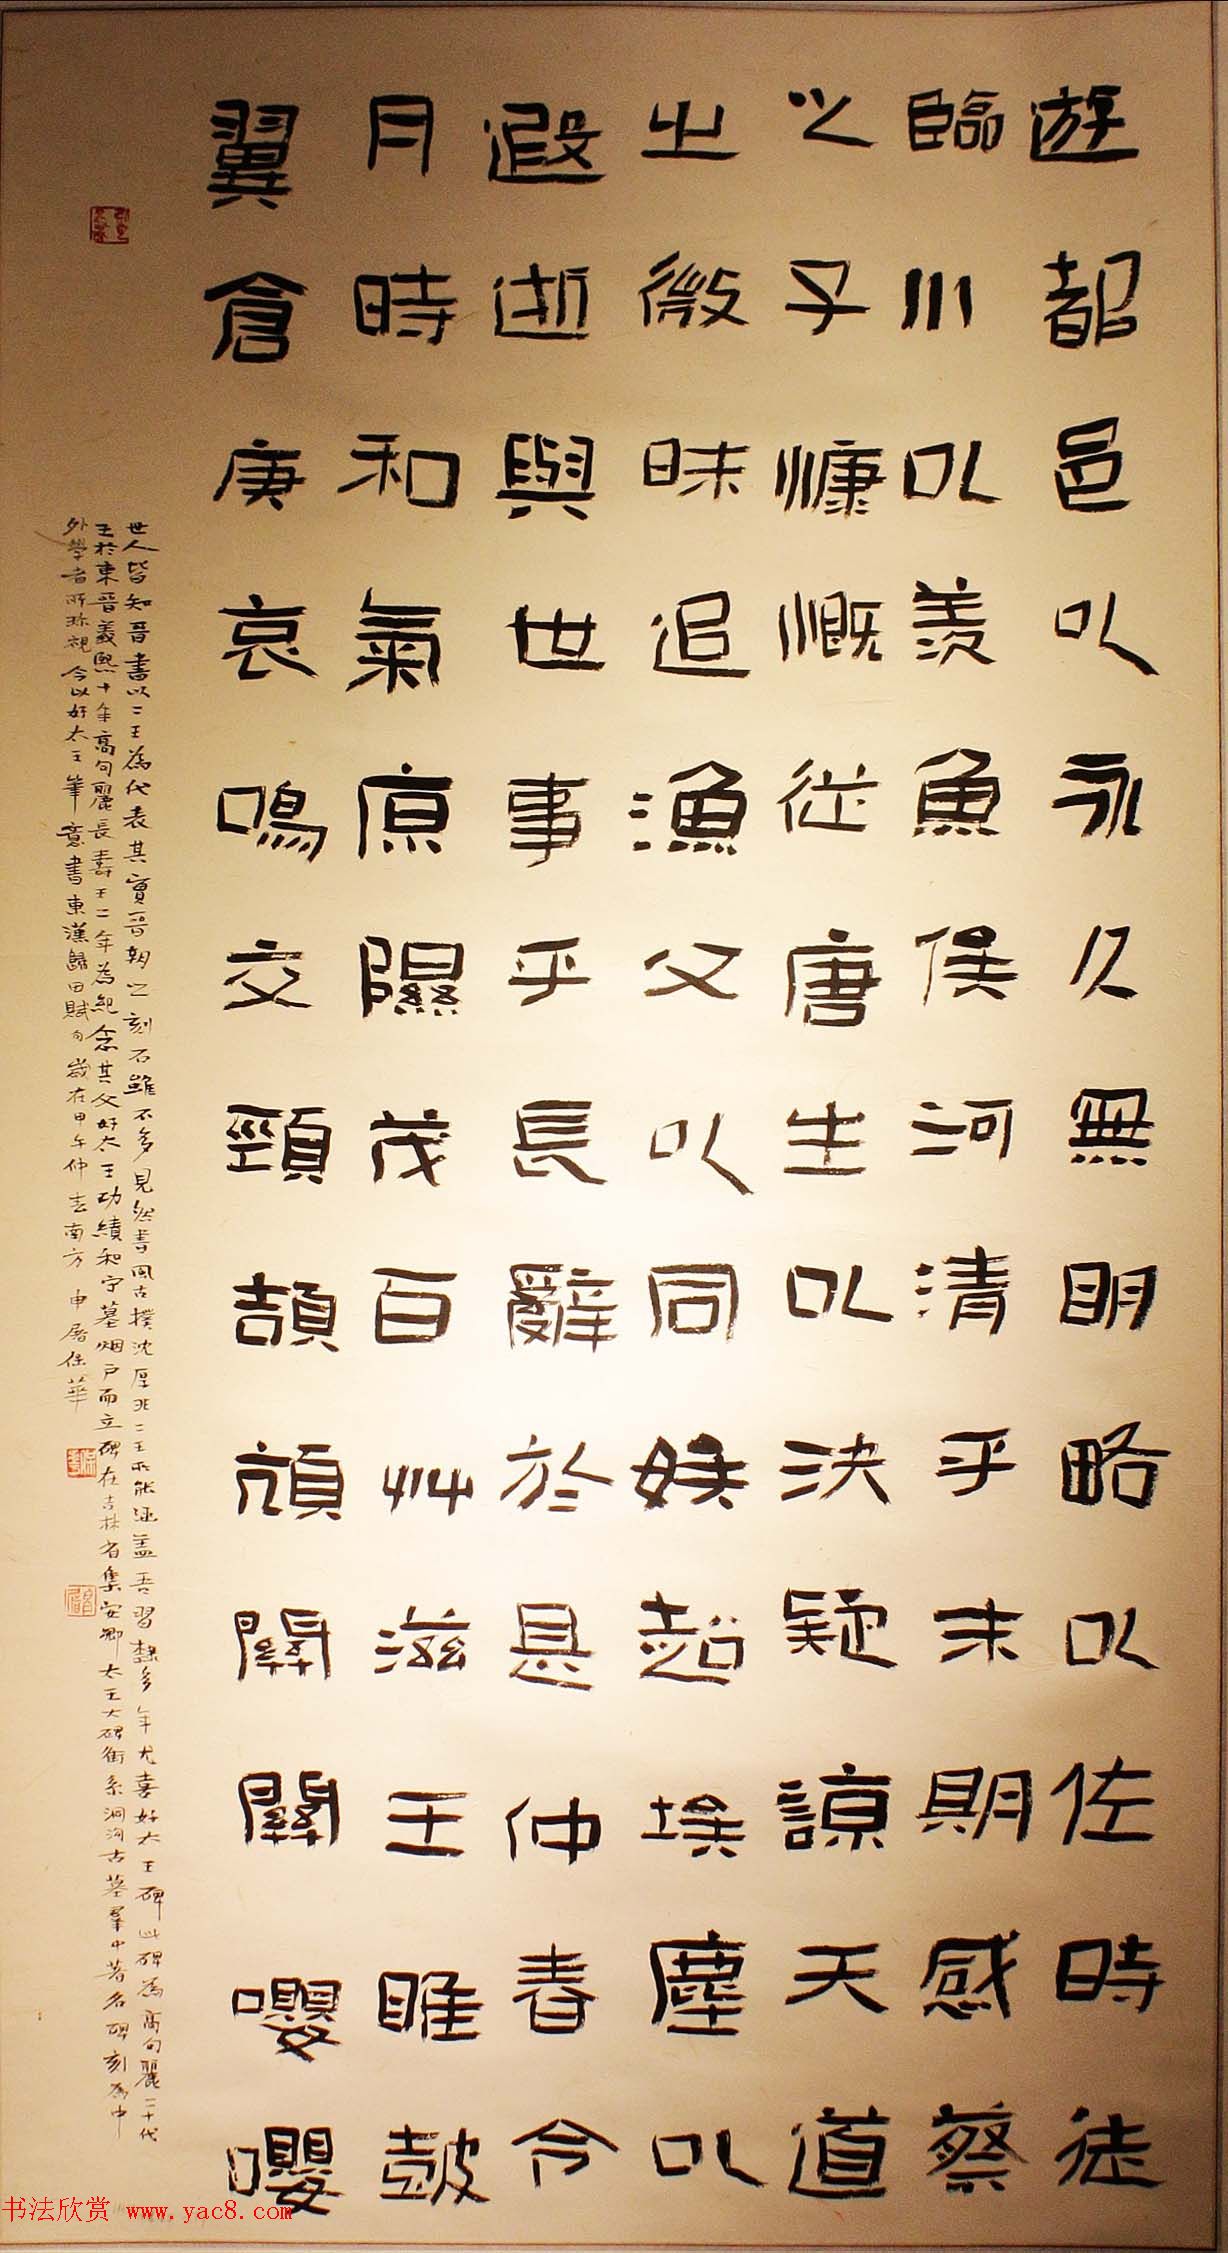 遊都邑以永久無明略以佐時徒
臨川以羨魚俟河清乎未期感蔡
之子慷慨從唐生以決疑諒天道
之微昧追漁父以同娛超埃塵以
遐逝與世事乎長辭於是仲春令
月時和氣原隰茂百艸滋王雎鼓
翼倉庚哀鳴交頸頡頏關關嚶嚶
世人皆知晉書以二王為代表其實晉朝之刻石雖不多見然書風古樸沈厚非二王所能涵蓋吾習藝多年尤喜好太王碑此碑為高句麗二十代
王於東晉義熙十年高句麗長壽王二年為紀念其父好太王功績和守墓烟戶而立碑在吉林省集安太王大碑街系洞溝古墓羣中著名碑刻為中
外學者所珍視今以好太王筆意書東漢歸田賦句歲在甲午仲春南方申屠華
书法欣赏 www.yac8.com